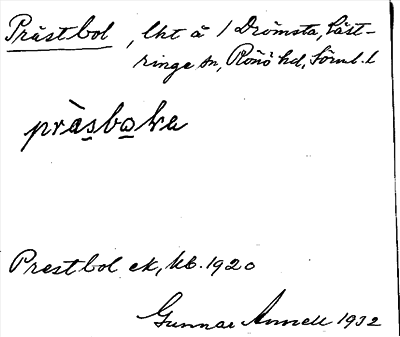 Prästbol, lht å 1 Drömsta, Väst-
ringe sn, Rönö hd, Söml. l
pràsboka
Prestbol ek, kb. 1920
Gunnar Annell 1932